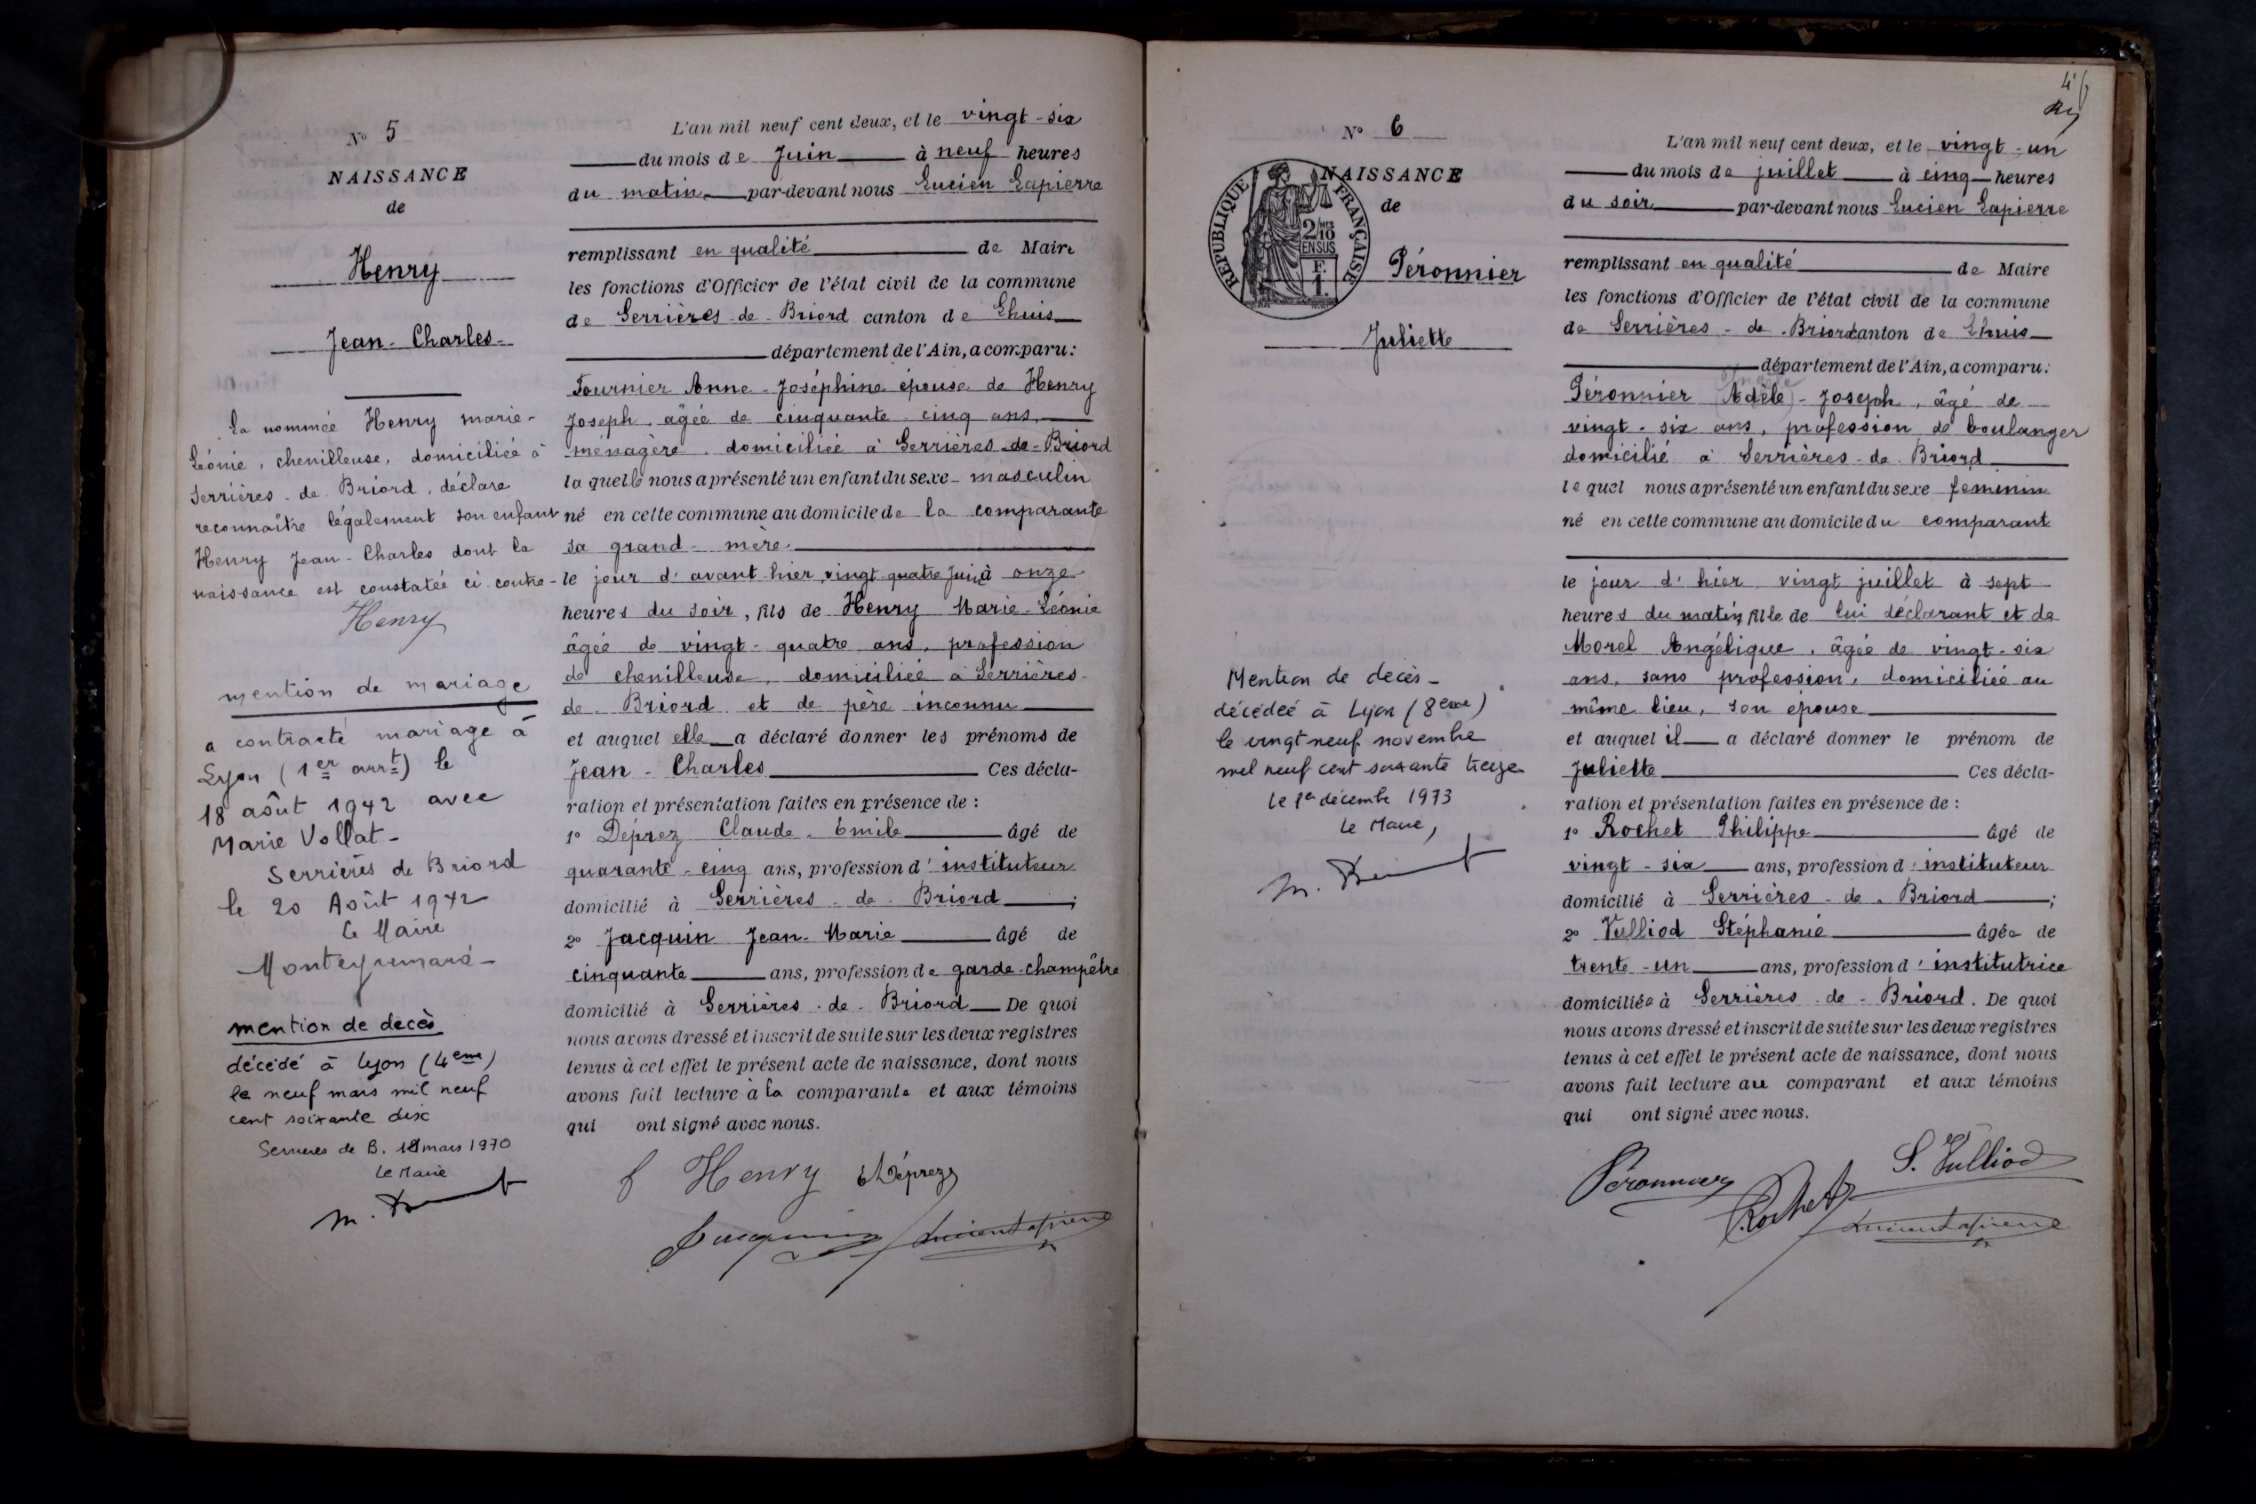 N° 5
NAISSANCE
de
Henry
Jean-Charles
La nommée Henry marie-
Léonie, chenilleuse, domiciliée à
Serrières-de-Briord, déclare
reconnaître légalement son enfant
Henry Jean-Charles dont la
naissance est constatée ci-contre-
Henry
mention de mariage
a contracté mariage à
Lyon (1er arrt) le
18 août 1942 avec
Marie Vollat-
Serrières de Briord
le 20 Août 1942
Le Maire
mention de decès
décédé à Lyon (4eme)
le neuf mars mil neuf
cent soixante dix
Serrieres de B. 18 mars 1970
Le Maire
L'an mil neuf cent deux, et le vingt-six
du mois de Juin à neuf heures
du matin par-devant nous Lucien Lapierre
remplissant en qualité de Maire
les fonctions d'Officier de l'état civil de la commune
de Serrières-de-Briord canton de Lhuis
département de l'Ain, a comparu:
Fournier Anne-Joséphine épouse de Henry
Joseph, âgée de cinquante-cinq ans,
ménagère, domiciliée à Serrières-de-Briord
laquelle nous a présenté un enfant du sexe masculin
né en cette commune au domicile de la comparante
sa grand-mère.
le jour d'avant-hier, vingt quatre Juin à onze
heures du soir, fils de Henry Marie-Léonie
âgée de vingt-quatre ans, profession
de chenilleuse, domiciliée à Serrières-
de-Briord et de père inconnu
et auquel elle a déclaré donner les prénoms de
Jean-Charles Ces décla-
ration et présentation faites en présence de :
1° Déprez Claude-Emile âgé de
quarante-cinq ans, profession d'instituteur
domicilié à Serrières-de-Briord ;
2° Jacquin Jean-Marie âgé de
cinquante ans, profession de garde-champêtre
domicilié à Serrières-de-Briord De quoi
nous avons dressé et inscrit de suite sur les deux registres
tenus à cet effet le présent acte de naissance, dont nous
avons fait lecture à la comparante et aux témoins
qui ont signé avec nous.
f Henry Déprez
Jacquin Lucien Lapierre
46
N° 6
NAISSANCE
de
RÉPUBLIQUE FRANÇAISE
2/10
EN SUS
Péronnier
Juliette
Mention de decès-
décédée à Lyon (8eme)
le vingt neuf novembre
mil neuf cent soixante treize
Le 1er décembre 1973
Le Maire,
L'an mil neuf cent deux, et le vingt-un
du mois de juillet à cinq heures
du soir par-devant nous Lucien Lapierre
remplissant en qualité de Maire
les fonctions d'Officier de l'état civil de la commune
de Serrières-de-Briord canton de Lhuis
département de l'Ain, a comparu:
Péronnier Adèle-Joseph, âgé de
vingt-six ans, profession de boulanger
domicilié à Serrières-de-Briord
lequel nous a présenté un enfant du sexe feminin
né en cette commune au domicile du comparant
le jour d'hier vingt juillet à sept
heures du matin, fille de lui déclarant et de
Morel Angélique, âgée de vingt-six
ans, sans profession, domiciliée au
même lieu, son épouse
et auquel il a déclaré donner le prénom de
Juliette Ces décla-
ration et présentation faites en présence de :
1° Rochet Philippe âgé de
vingt-six ans, profession d'instituteur
domicilié à Serrières-de-Briord ;
2° Vulliod Stéphanie âgée de
trente-un ans, profession d'institutrice
domiciliée à Serrières-de-Briord. De quoi
nous avons dressé et inscrit de suite sur les deux registres
tenus à cet effet le présent acte de naissance, dont nous
avons fait lecture au comparant et aux témoins
qui ont signé avec nous.
Péronnier S. Vulliod
Rochet Lucien Lapierre